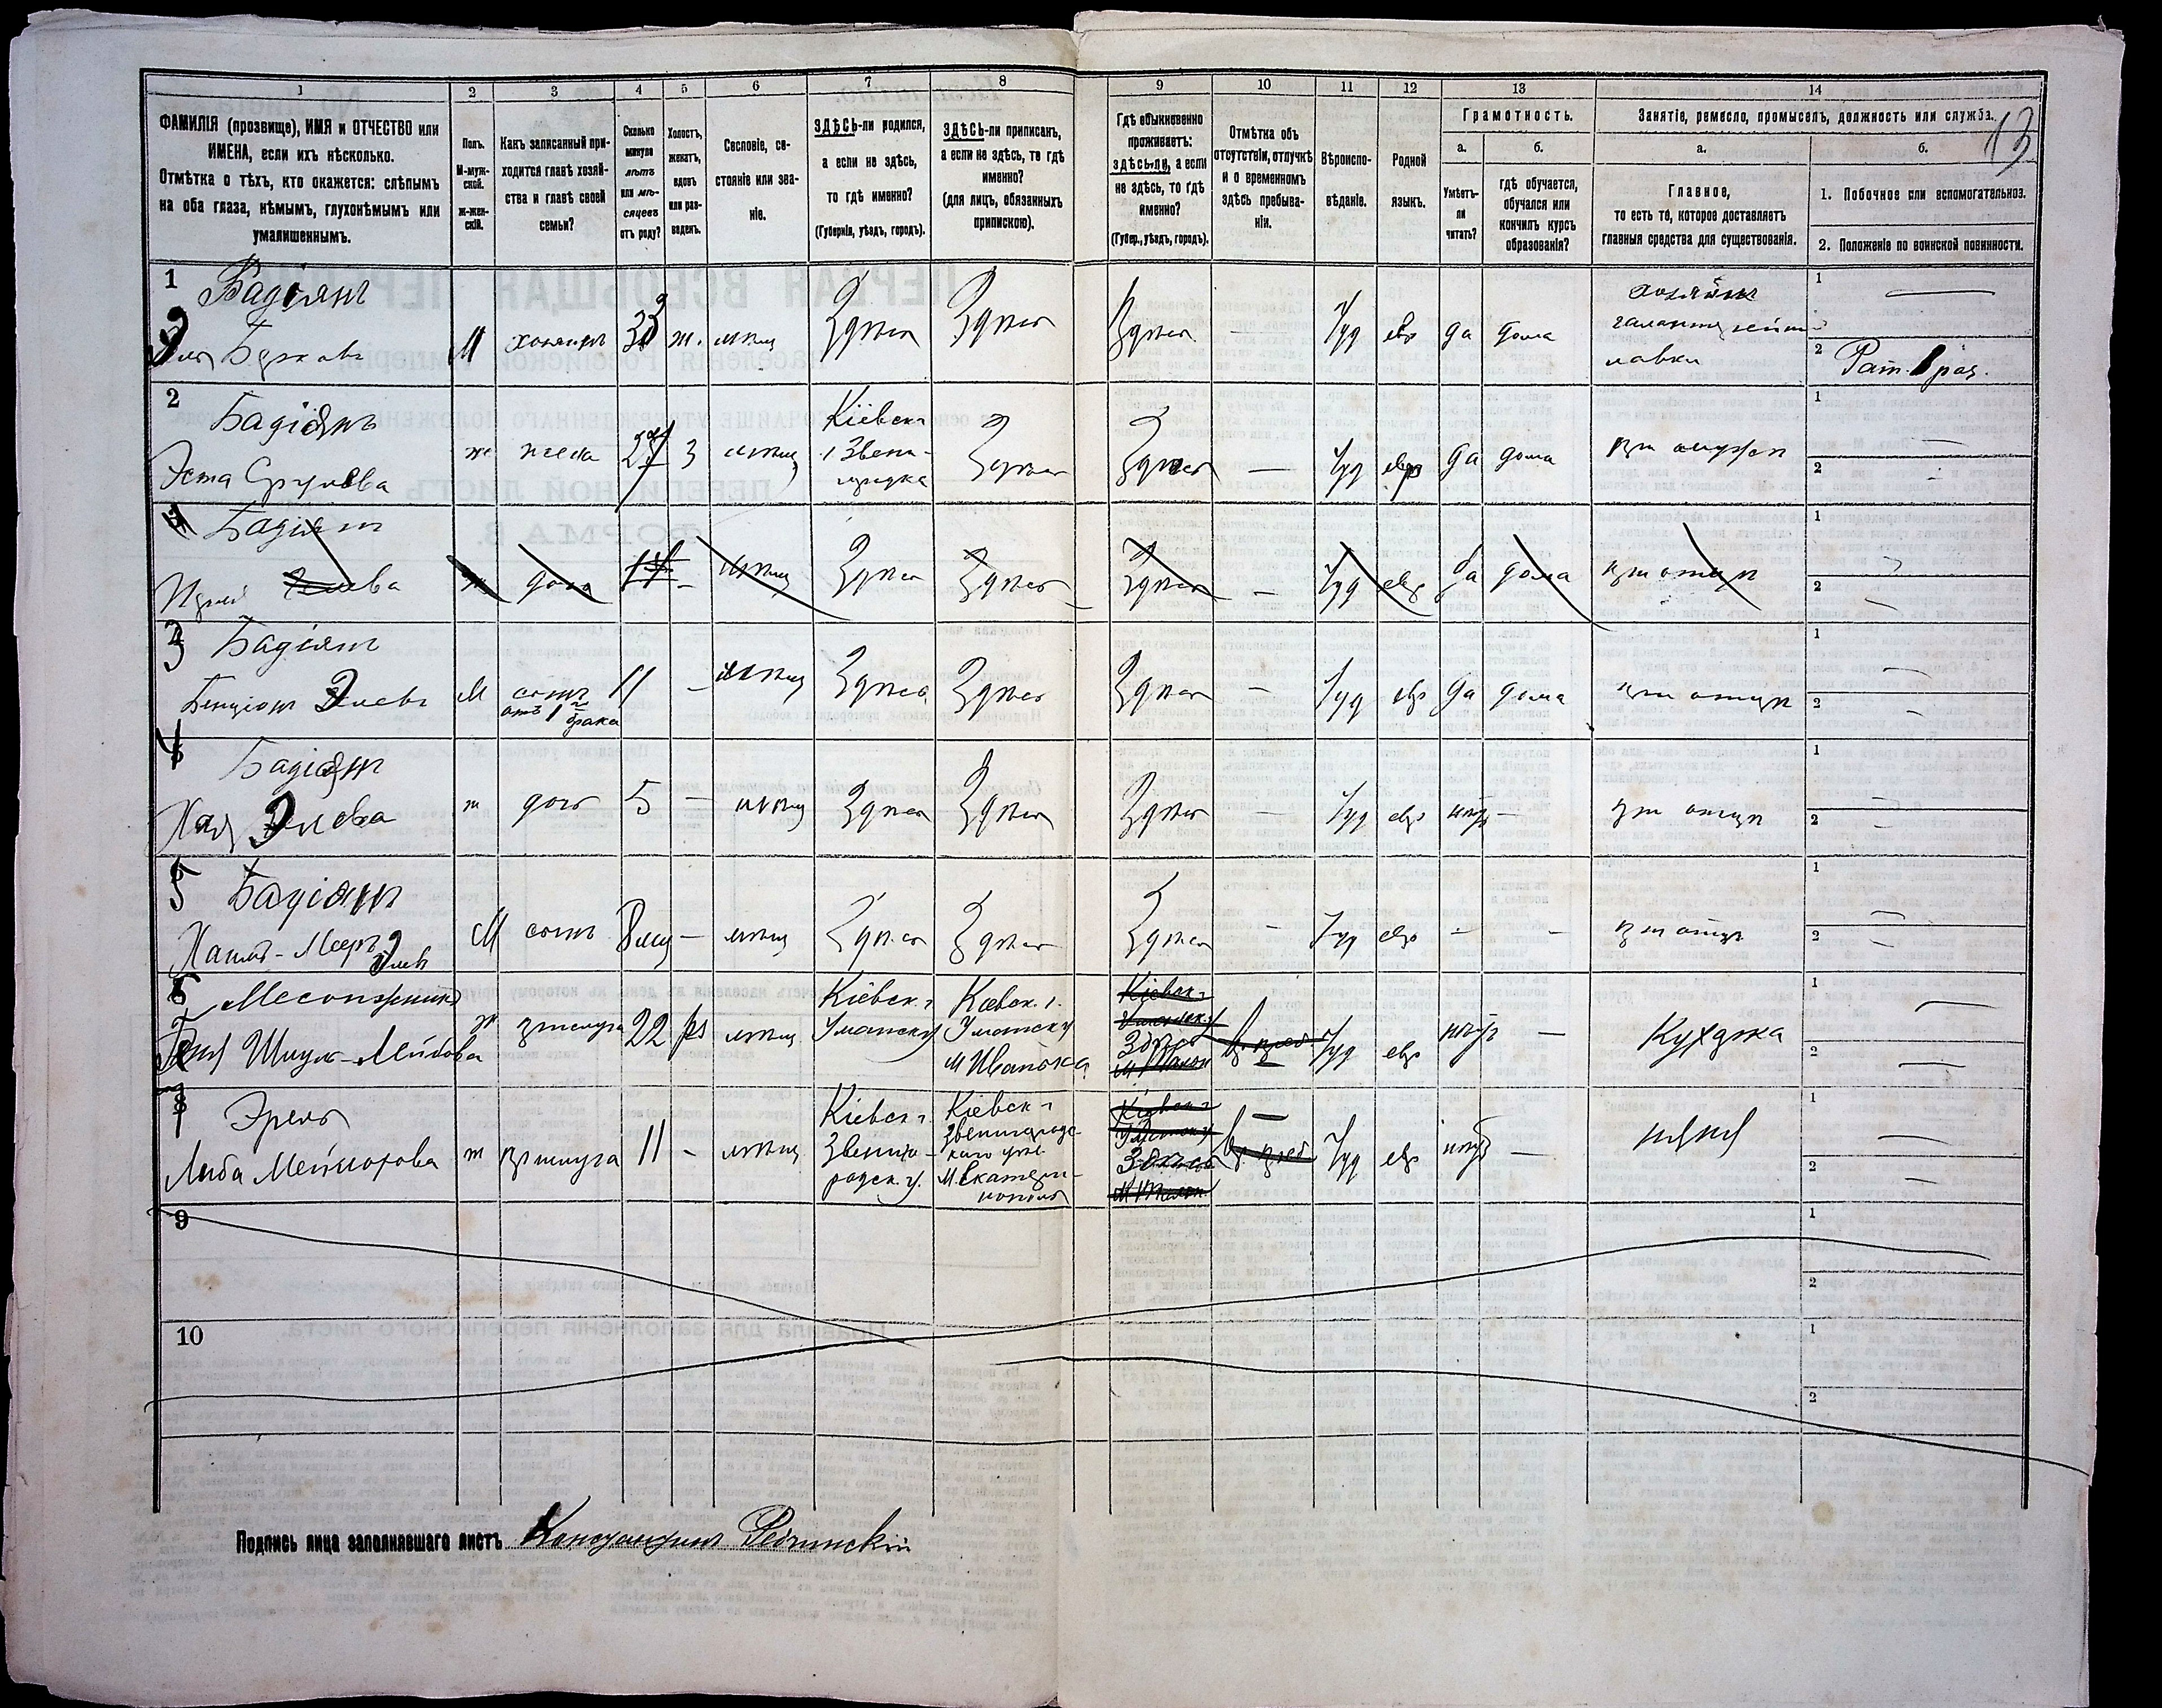 1
2
3
4
5
6
7
8
9
10
11
12
13
14
ФАМИЛІЯ (прозвище), ИМЯ и ОТЧЕСТВО или
ИМЕНА, если ихъ нѣсколько.
Отмѣтка о тѣхъ, кто окажется: слѣпымъ
на оба глаза, нѣмымъ, глухонѣмымъ или
умалишеннымъ.
Полъ.
М-муж-
ской.
Ж-жен-
скій.
Какъ записанный при-
ходится главѣ хозяй-
ства и главѣ своей
семьи?
Сколько
минуло
лѣтъ
или мѣ-
сяцевъ
отъ роду?
Холостъ,
женатъ,
вдовъ
или раз-
веденъ.
Сословіе, со-
стояніе или зва-
ніе.
ЗДѢСЬ-ли родился,
а если не здѣсь,
то гдѣ именно?
(Губернія, уѣздъ, городъ).
ЗДѢСЬ-ли приписанъ,
а если не здѣсь, то гдѣ
именно?
(для лицъ, обязанныхъ
припискою).
Гдѣ обыкновенно
проживаетъ:
здѣсь-ли, а если
не здѣсь, то гдѣ
именно?
(Губер., уѣздъ, городъ).
Отмѣтка объ
отсутствіи, отлучкѣ
и о временномъ
здѣсь пребыва-
ніи.
Вѣроиспо-
вѣданіе.
Родной
языкъ.
Грамотность.
а.
б.
Умѣетъ-
ли
читать?
гдѣ обучается,
обучался или
кончилъ курсъ
образованія?
Занятіе, ремесло, промыселъ, должность или служба.
13
а.
б.
Главное,
то есть то, которое доставляетъ
главныя средства для существованія.
1. Побочное или вспомогательное.
2. Положеніе по воинской повинности.
1
Бадіянъ
Эля Берковъ
М
хозяинъ
33
ж.
мѣщ
Здѣсь
Здѣсь
Здѣсь
—
Іуд
евр
да
дома
хозяинъ
галантерейной
лавки
1
2
Рат. 1 раз.
2
Бадіянъ
Эста Срулева
ж
жена
27
З
мѣщ
Кіевск г
Звени-
городка
Здѣсь
Здѣсь
—
Іуд
евр
да
дома
при мужѣ
1
2
Бадіянъ
ж
дочь
14
—
мѣщ
Здѣсь
Здѣсь
Здѣсь
—
Іуд
евр
да
дома
при отцѣ
1
2
3
Бадіянъ
Бенціонъ Элевъ
М
сынъ
отъ 1й брака
11
—
мѣщ
Здѣсь
Здѣсь
Здѣсь
—
Іуд
евр
да
дома
при отцѣ
1
2
4
Бадіянъ
Хая Элева
ж
дочь
5
—
мѣщ
Здѣсь
Здѣсь
Здѣсь
—
Іуд
евр
нѣтъ
—
при отцѣ
1
2
5
Бадіянъ
Элевъ
М
сынъ
8 мѣц
—
мѣщ
Здѣсь
Здѣсь
Здѣсь
—
Іуд
евр
—
—
при отцѣ
1
2
6
Шмуль-Лейбова
ж
прислуга
22
мѣщ
Кіевск. г
Уманск у
Кіевск. г.
Уманск у
м Иванька
Кіевск г
Уманск. у
Здѣсь
Іуд
евр
нѣтъ
—
Кухарка
1
2
7
Лыба
ж
прислуга
11
—
мѣщ
Кіевск г.
Звениго-
родск. у.
Кіевск г
Звенигород-
м. Екатери-
нополь
Кіевск г
Здѣсь
—
Іуд
евр
нѣтъ
—
няня
1
2
9
1
2
10
1
2
Подпись лица заполнявшаго листъ